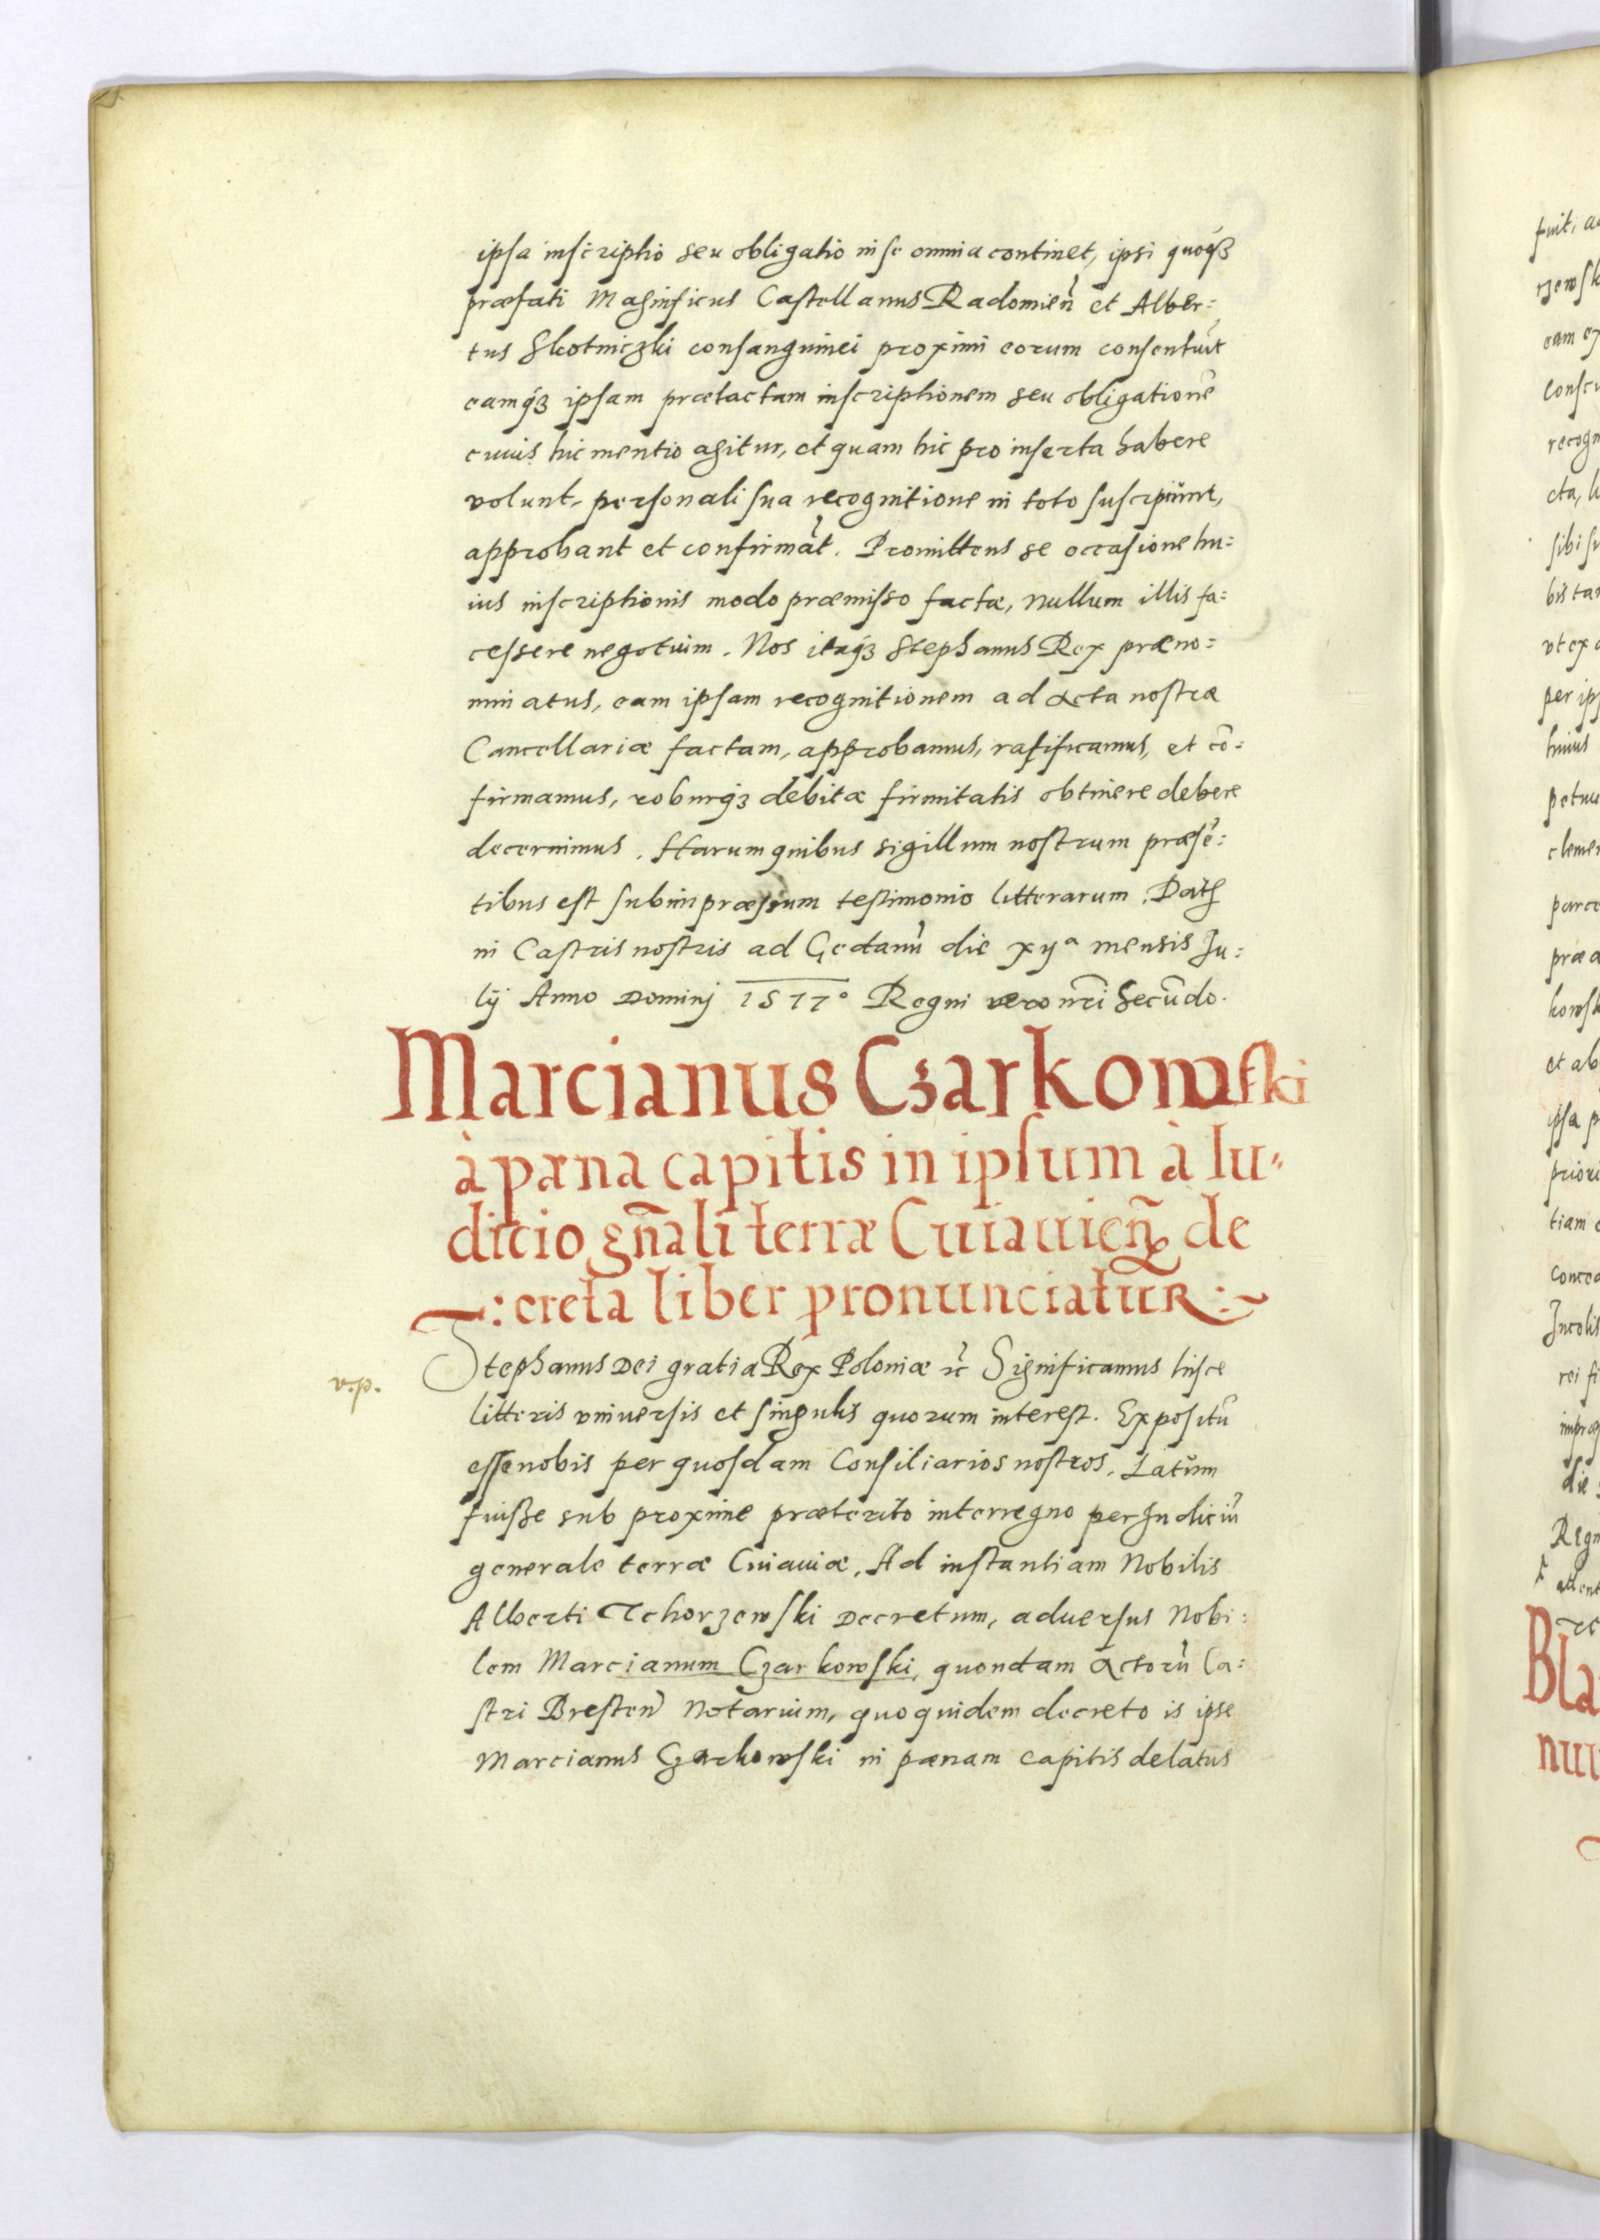 ipsa inscriptio seu obligatio in se omnia continet, ipsi quoq́ꝫ
præfati Magnificus Castellanus Radomieñ et Alber=
tus Skotniczki consanguinei proximi eorum consentiũt
eamq́ꝫ ipsam prætactam inscriptionem seu obligationẽ
cuius hic mentio agitur, et quam hic pro inserta habere
volunt, personali sua recognitione in toto suscipiunt,
approbant et confirmãt. Promittens se occasione hu=
ius inscriptionis modo præmisso factæ, nullum illis fa=
cessere negotium. Nos itaq́ꝫ Stephanus Rex præno=
minatus, eam ipsam recognitionem ad Acta nostræ
Cancellariæ factam, approbamus, ratificamus, et cõ=
firmamus, roburq́ꝫ debitæ firmitatis obtinere debere
decernimus. Harum quibus sigillum nostrum præsẽ=
tibus est subimpræssum testimonio litterarum. Datȝ
in Castris nostris ad Gedanũ die xijᵃ mensis Iu=
lij Anno Dominj 1577° Regni vero nr̃i Secũdo.
Marcianus Czarkowski
à pæna capitis in ipsum à Iu=
dicio gñali terræ Cuiauieñ de
:creta liber pronunciatur:~
v:p.
Stephanus Dei gratia Rex Poloniæ ꝛc̃ Significamus hisce
litteris vniuersis et singulis quorum interest. Expositũ
esse nobis per quosdam Consiliarios nostros, Latum
fuisse sub proxime præterito interregno per Iudiciũ
generale terræ Cuiauiæ, Ad instantiam Nobilis
Alberti Tchorzewski Decretum, aduersus Nobi:
lem Marcianum Czarkowski, quondam Actorũ Ca:
stri Bresteñ Notarium, quo quidem decreto is ipse
Marcianus Czarkowski in pænam capitis delatus